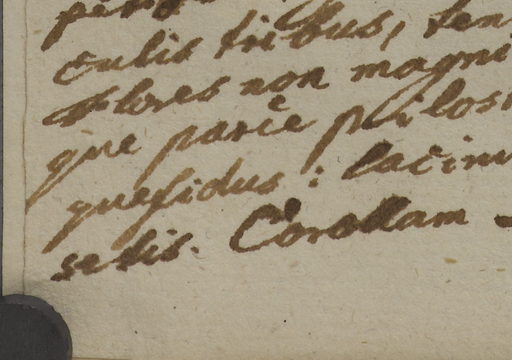 culis tribus, ten
Flores non magni
que parcè pilosi
quefidus: lacini
setis. Corollam